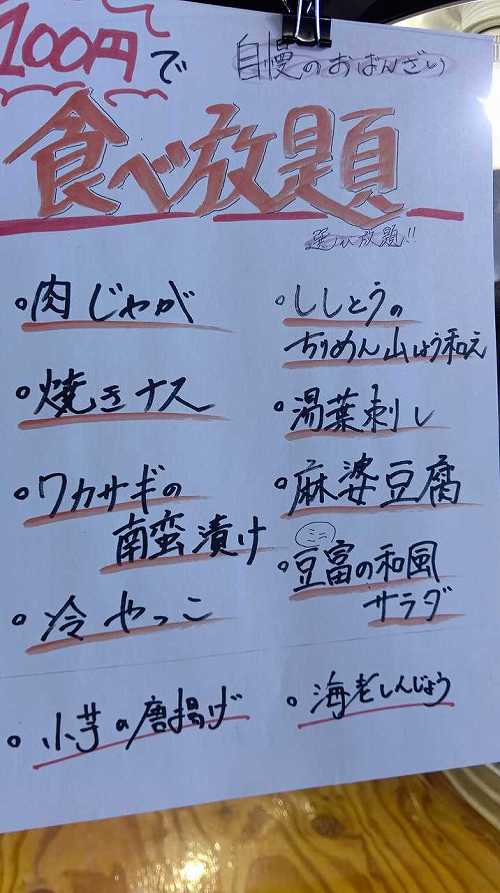 100円で
自慢のおばんざい
食べ放題
選び放題!!
肉じゃが
焼きナス
ワカサギの
南蛮漬け
冷やっこ
小芋の唐揚げ
ししとうの
ちりめん山しょう和え
湯葉刺し
麻婆豆腐
豆富の和風
サラダ
海老しんじょう